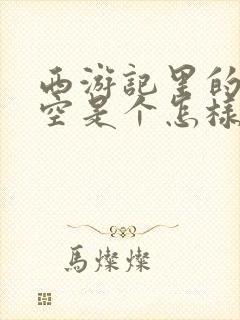 西游记里的
空是个怎样
馬燦燦